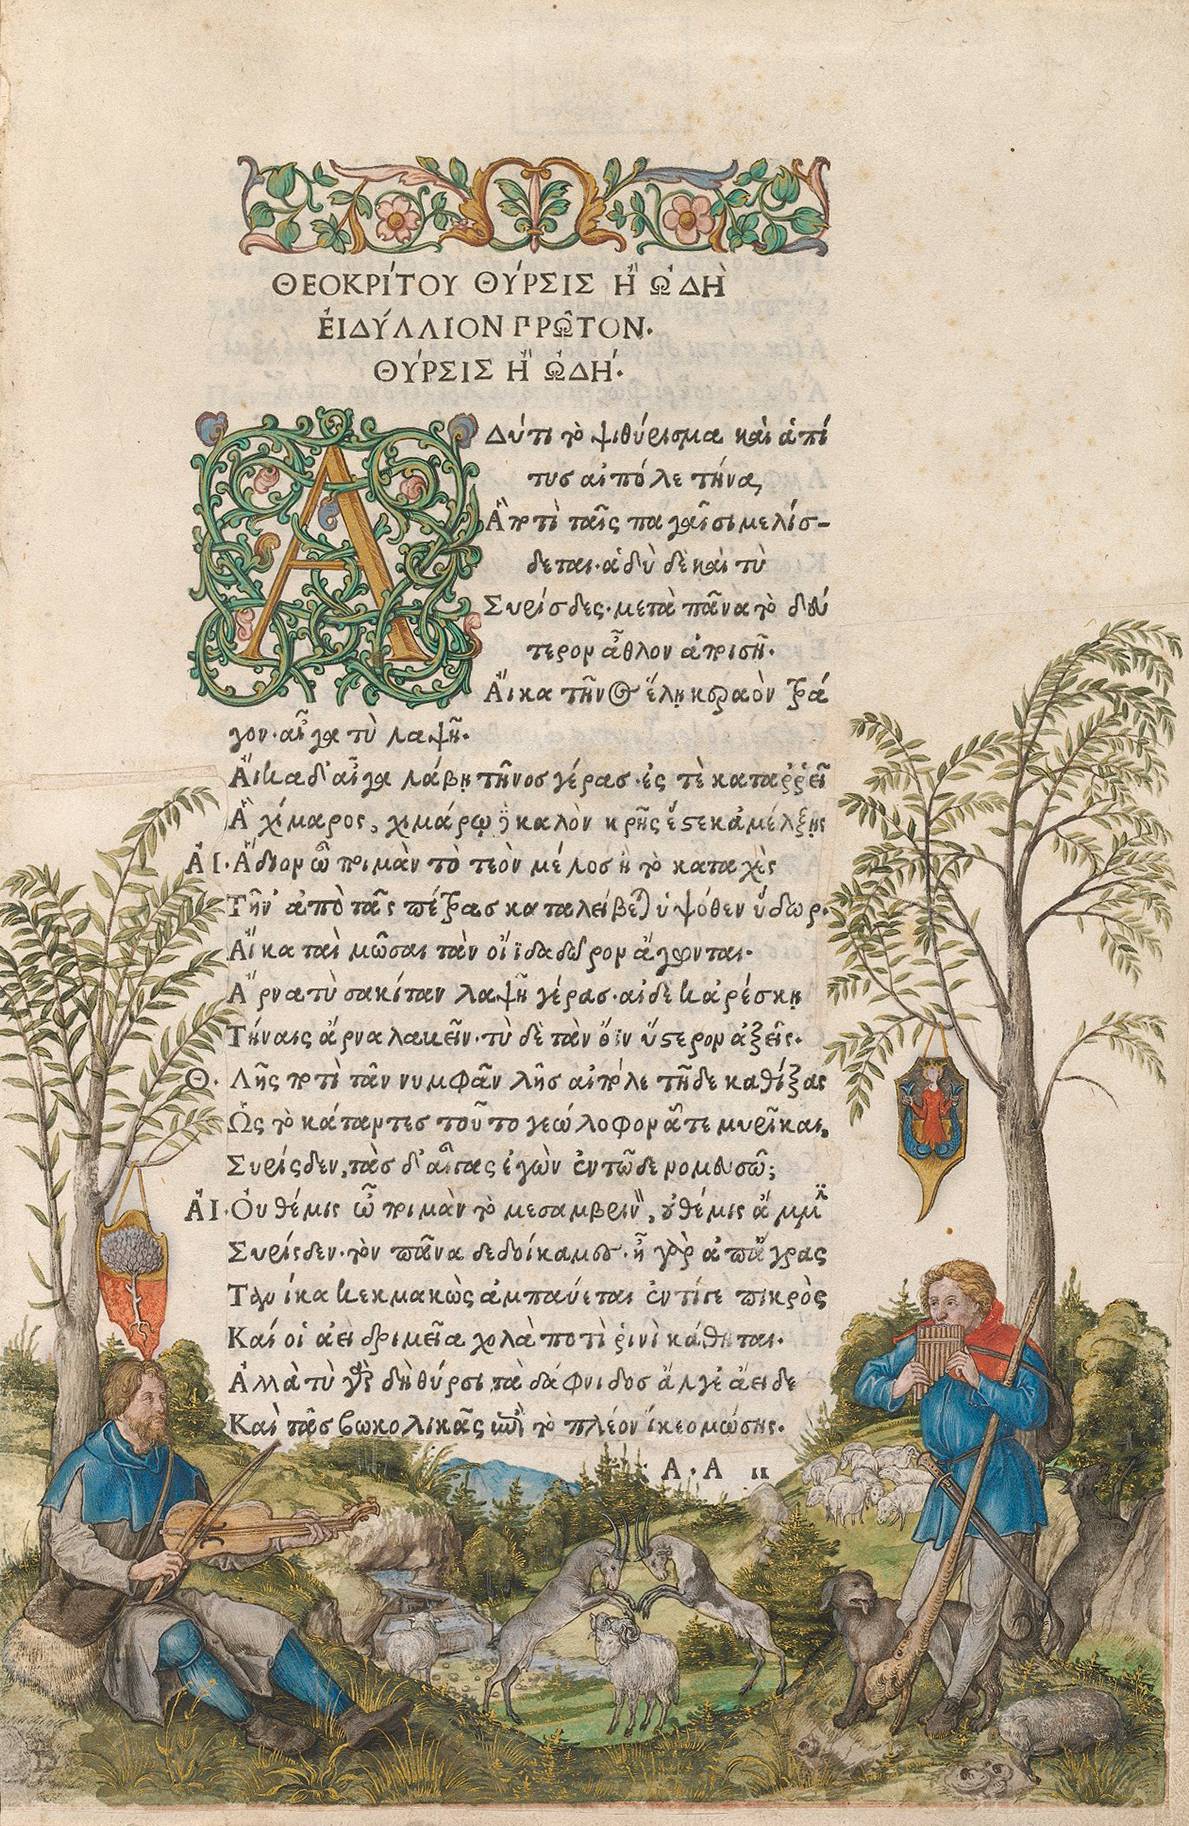 ΘΕΟΚΡΊΤΟΥ ΘΎΡΣΙΣ Ἢ ὨΔῊ
ἘΙΔΎΛΛΙΟΝ ΠΡΩ͂ΤΟΝ.
ΘΎΡΣΙΣ Ἢ ὨΔΉ.
Αδύ τι τὸ ψιθύρισμα καὶ ἁ πί
τυσ αἰπόλε τήνα,
Ἃ ποτὶ ταῖς παγαῖσι μελίσ-
δεται. ἁδὺ δὲ καὶ τὺ
Συρίσδες. μετὰ πᾶνα τὸ δεύ
τερον ἆθλον ἀποισῆ.
Αἴκα τῆνος ἕλῃ κεραὸν τρά
γον. αἶγα τὺ λαψῆ.
Αἴκα δ' αἶγα λάβῃ τῆνοσ γέρασ. ἐς τὲ καταῤῥεῖ
Ἁ χίμαρος, χιμάρῳ δὲ καλὸν κρῆς ἔστε κ' ἀμέλξῃς
ἈΙ. Ἅδιον ὦ ποιμὰν τὸ τεὸν μέλοσ ἢ τὸ καταχὲς
Τῆν' ἀπὸ τᾶς πέτρασ καταλείβεται ὑψόθεν ὕδωρ.
Αἴκα ταὶ μῶσαι τὰν οἴϊδα δῶρον ἄγωνται.
Ἄρνα τὺ σακίταν λαψῆ γέρασ. αἰ δὲ κ' ἀρέσκῃ
Τήναις ἄρνα λαβεῖν. τὺ δὲ τὰν ὄϊν ὕστερον ἀξεῖς.
Θ. Λῆς ποτὶ τᾶν νυμφᾶν λῆσ αἰπόλε τῆδε καθίξας
Ὡς τὸ κάταντεσ τοῦτο γεώλοφον ἅτε μυρῖκαι,
Συρίσδεν, τὰσ δ' αἶγας ἐγὼν ἐν τῶδε νομευσῶ;
ἈΙ. Οὐ θέμις ὦ ποιμὰν τὸ μεσαμβρινὸν, οὐ θέμις ἄμμιν
Συρίσδεν. τὸν πᾶνα δεδοίκαμες. ἦ γὰρ ἀπ' ἄγρας
Τανίκα κεκμακὼς ἀμπαύεται ἐντί γε πικρὸς
Καί οἱ ἀεὶ δριμεῖα χολὰ ποτὶ ῥινὶ κάθηται.
Ἀλλὰ τὺ γὰρ δὴ θύρσι τὰ δάφνιδοσ ἄλγε' ἄειδε
Καὶ τᾶσ βωκολικᾶς ἐπὶ τὸ πλέον ἵκεο μώσης.
Α. Α ιι